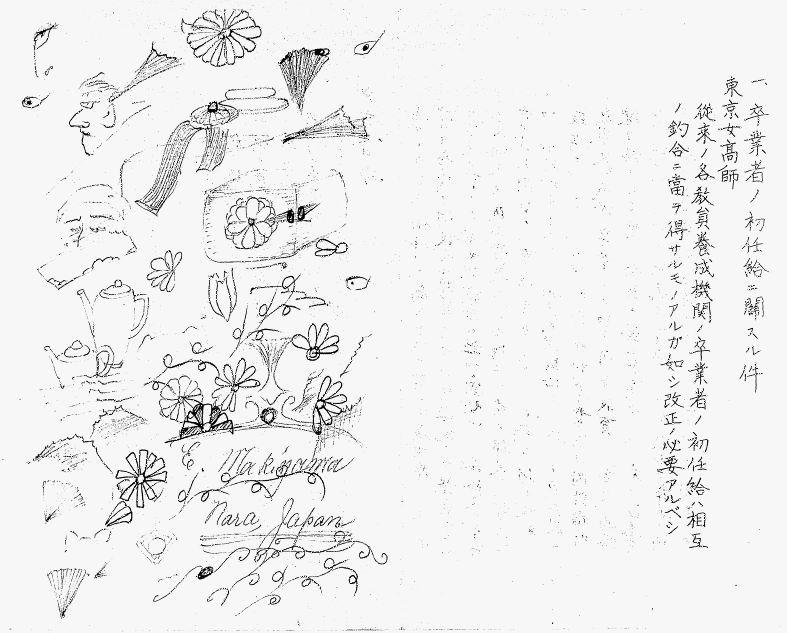 一、卒業者ノ初任給ニ關スル件
東京女高師
從來ノ各敎員養成機関ノ卒業者ノ初任給ハ相互
ノ釣合ニ當ヲ得サルモノアルガ如シ改正ノ必要アルベシ
E. Makinama
Nara, Japan